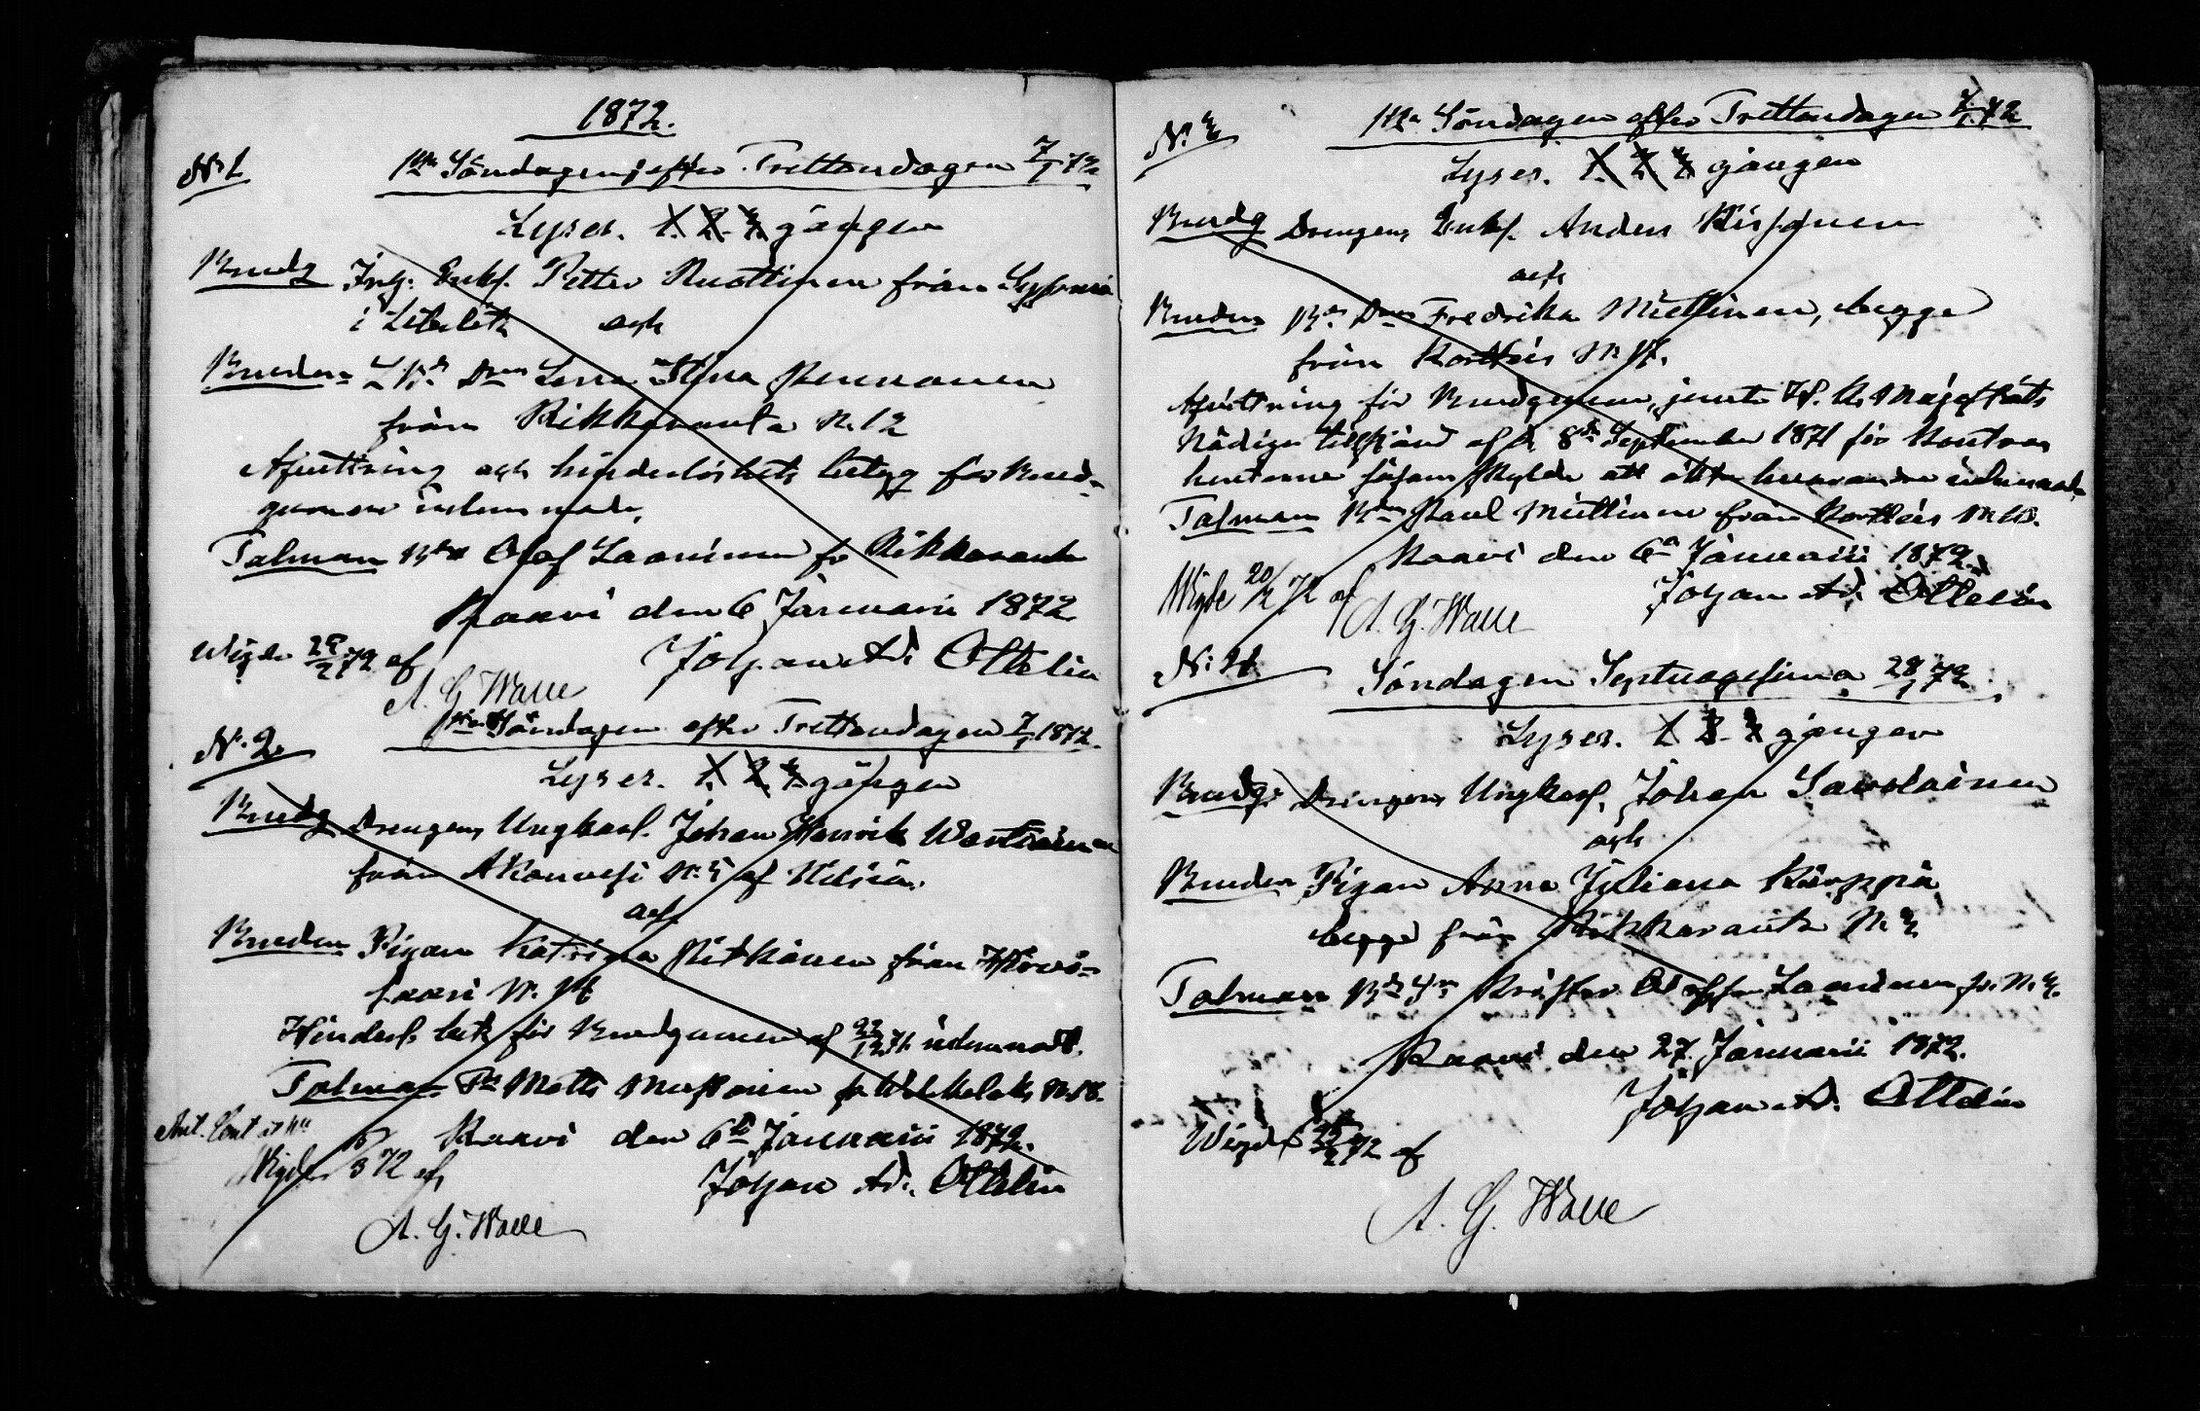 1872.
N:1
1sta Söndagen efter Trettondagen 7/1 72
Lyses. 1. 2. 3. gången
Brudg Inh: Enkl. Petter Ruottinen från
i Libelitz och
Bruden Lena Stina
från Rikkaranta N. 12
Afvittring och hinderlöshets betyg för Brud-
gummen inlemnade,
Talman Olof Laaninen fr Rikkaranta
Kaavi den 6 Januarii 1872
Johan Ad. Ottelin
Wigde 29/2 72 af
A. G. Walle
N:2.
1sta Söndagen efter Trettondagen 7/1 1872.
Lyses. 1. 2. 3. gången
Brudg Drengen Ungkarl. Johan Henrik
från Akonvesi N: 5 af Nilsiä.
och
Bruden Pigan Katrina Pitkänen från
saari N. 14
Hinderl. bet. för Brudgummen af 22/12 71 inlemnadt.
Talman Matts Mustonen fr N. 18.
Kaavi den 6te Januarii 1872.
Johan Ad. Ottelin
Wigde /3 72 af
A. G. Walle
N:3
1sta Söndagen efter Trettondagen 7/1 72
Lyses. 1. 2. 3. gången
Brudg Drengen Enkl. Anders
och
Bruden Fredrika Miettinen, begge
från Kortteis N. 14.
Afvittring för Brudgummen, jemte H. K. Majestäts
Nådiga tillstånd af d. 8de September 1871 för Kontra-
henterne att ätta hvarandra inlemnade
Talman Paul Miettinen från Kortteis
Kaavi den 6te Januarii 1872.
Johan Ad. Ottelin
Wigde 20/2 72 af
A. G. Walle
N:4
Söndagen Septuagesima 28/1 72
Lyses. 1. 2. 3. gången
Brudg: Drengen Ungkarl. Johan Savolainen
och
Bruden Pigan Anna Juliana Kärppä
begge från Rikkaranta N. 3
Talman Krister Olofsson Laaninen fr. N. 3.
Kaavi den 27. Januarii 1872.
Johan Ad. Ottelin
Wigde /2 72 af
A. G. Walle